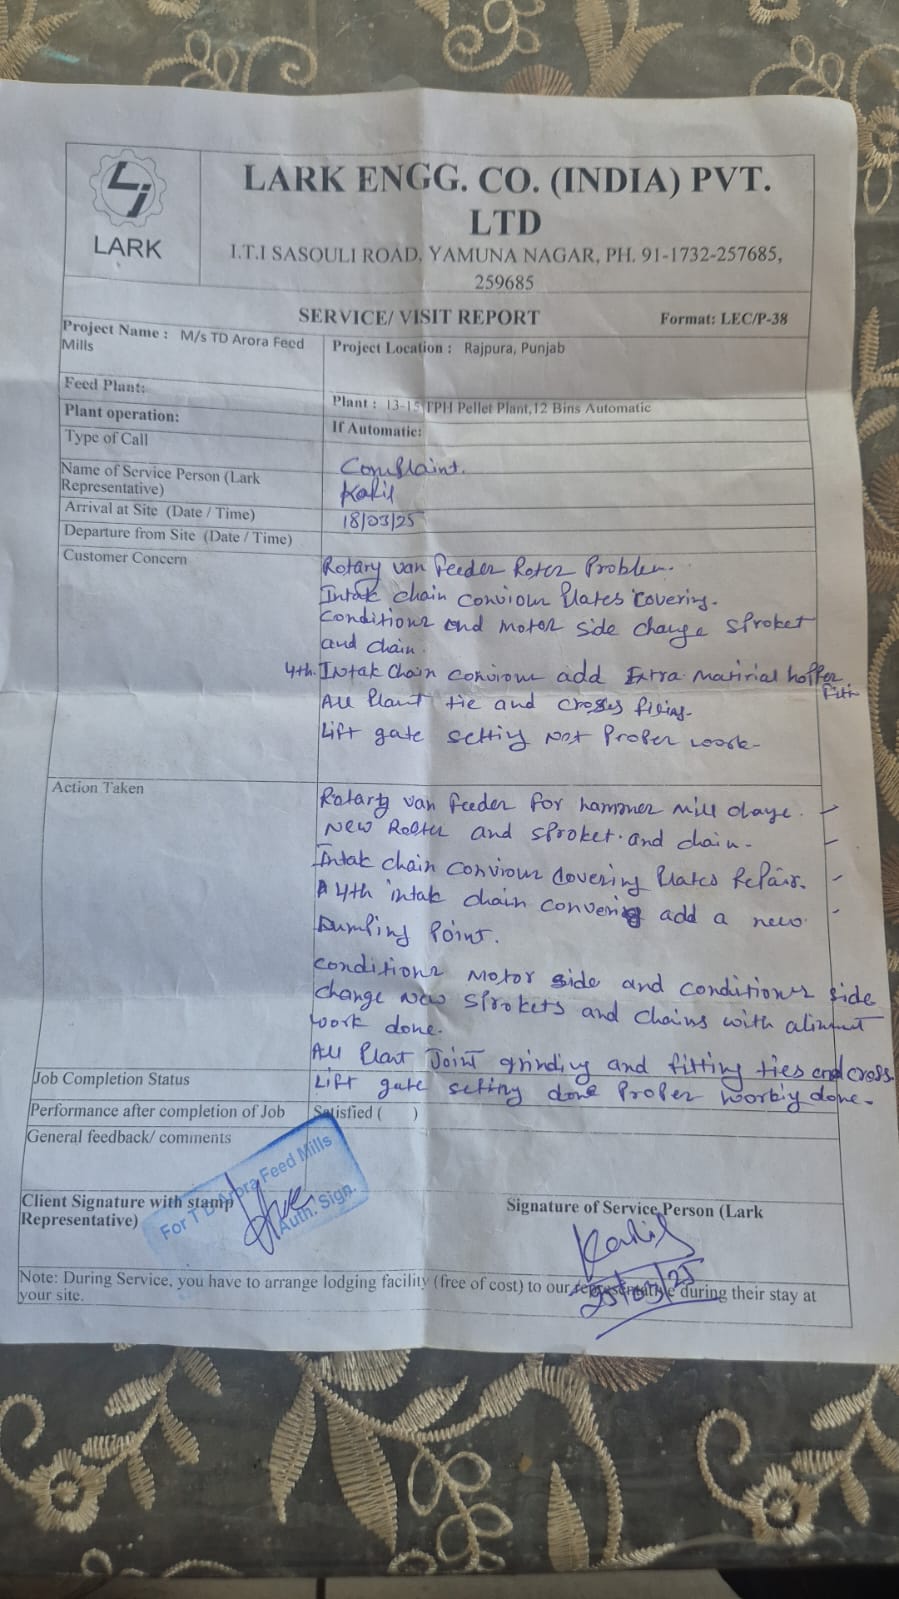 LARK
LARK ENGG. CO. (INDIA) PVT.
LTD
I.T.I SASOULI ROAD, YAMUNA NAGAR, PH. 91-1732-257685,
259685
SERVICE/ VISIT REPORT Format: LEC/P-38
Project Name : M/s TD Arora Feed
Mills
Project Location : Rajpura, Punjab
Feed Plant:
Plant : 13-15 TPH Pellet Plant,12 Bins Automatic
Plant operation:
If Automatic:
Type of Call
Complaint.
Name of Service Person (Lark
Representative)
Arrival at Site (Date / Time)
18/03/25
Departure from Site (Date / Time)
Customer Concern
Rotary van feeder Roter Problem.
Intak chain conviour Plates covering.
Conditionr end motor side change sproket
and chain.
4th. Intak chain conviour add Extra matirial hoffer
All Plant tie and
Lift gate setting not Proper work-
Action Taken
Rotary van feeder for hammer mill
New and sproket and chain-
Intak chain conviour covering Plates Repair.
A 4th intak chain add a new
Dumping Point.
Conditionr motor side and conditionr side
change new sprokets and chains with
work done.
All Plant Joint grinding and fitting ties end cross.
Job Completion Status
Lift gate setting done Proper done-
Performance after completion of Job
Satisfied ( )
General feedback/ comments
For T D Arora Feed Mills
Auth. Sign.
Client Signature with stamp
Representative)
Signature of Service Person (Lark
25/03/25
Note: During Service, you have to arrange lodging facility (free of cost) to our representative during their stay at
your site.